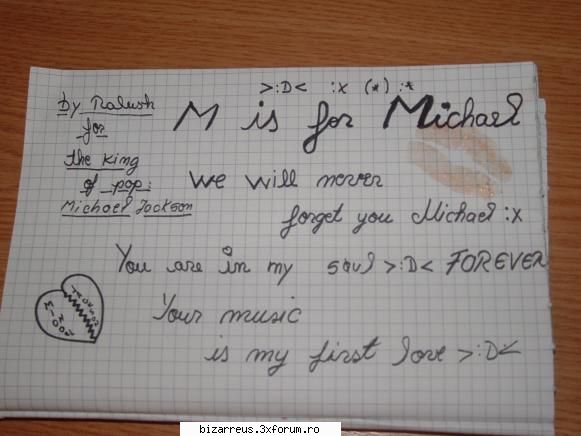 >:D< :x (*) :*
by Ralush
for
the king
of pop:
Michael Jackson
M is for Michael
We will never
forget you Michael :x
You are in my soul >:D< FOREVER
Your music
is my first love >:D<
bizarreus.3xforum.ro